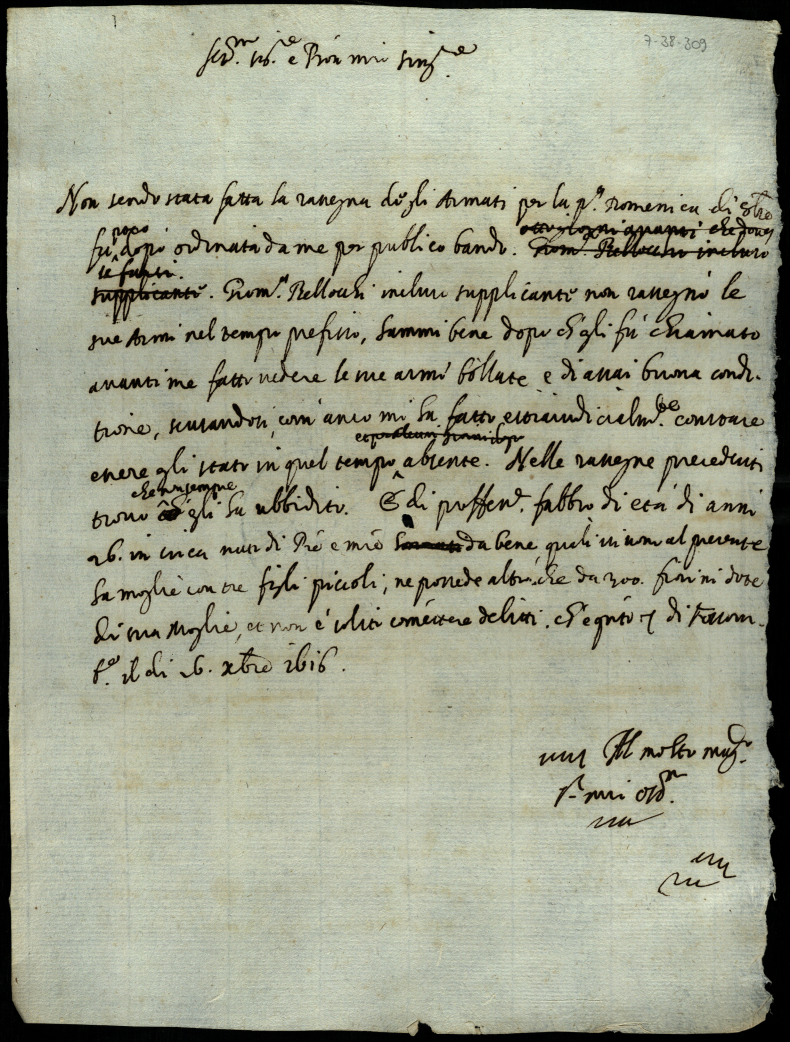 7-38-309
Ser.mo Sig.re e Pron mio sing.re
Non sendo stata fatta la rassegna degli Armati per la p.a Domenica di 8bre
poco
fù dopò ordinata da me per publico bando. Giom.o Bellocchi incluso
supplicante. Giom.o Bellocchi incluso supplicante non rassegnò le
sue Armi nel tempo prefisso, hammi bene dopo ch'egli fù chiamato
avanti me fatto vedere le sue armi bollate e di assai buona condi-
tione, scusandosi, com' anco mi ha fatto estraiudicialm.te constare
essere egli stato in quel tempo absente. Nelle rassegne precedenti
che mi sempre
trovo ch' egli ha ubbidito. È di profess.e fabbro di età di anni
26. in circa nato di Pre e Mre da bene quali al presente
ha moglie con tre figli piccoli, ne possede altro che da 300. fiorini dote
di sua Moglie, et non è solito comettere delitti. ch'è q.to
il di 26. xbre 1616.
Al molto mag.
mio oss.